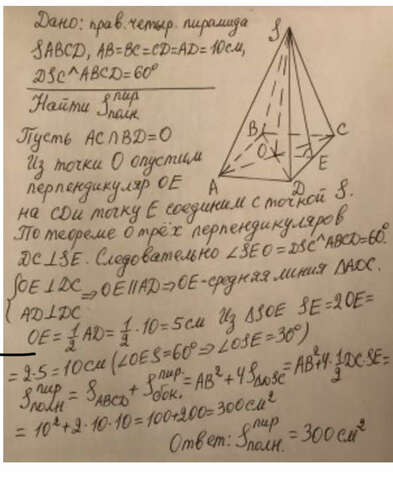 Дано: прав. четыр. пирамида
SABCD, AB=BC=CD=AD=10см,
DSC^ABCD=60°
Найти S пир полн.
S
B
C
O
E
A
D
Пусть AC∩BD=O
Из точки O опустим
перпендикуляр OE
на CD и точку E соединим с точкой S.
По теореме о трёх перпендикулярах
DC⊥SE. Следовательно ∠SEO=DSC^ABCD=60°.
{OE⊥DC
AD⊥DC ⇒OE∥AD⇒OE-средняя линия ΔADC.
OE=1/2AD=1/2·10=5см Из ΔSOE SE=2OE=
=2·5=10см (∠OES=60°⇒∠OSE=30°)
S пир полн.=S ABCD+S пир. бок.=AB²+4S ΔDSC=AB²+4·1/2DC·SE=
=10²+2·10·10=100+200=300см²
Ответ: S пир полн.=300см²